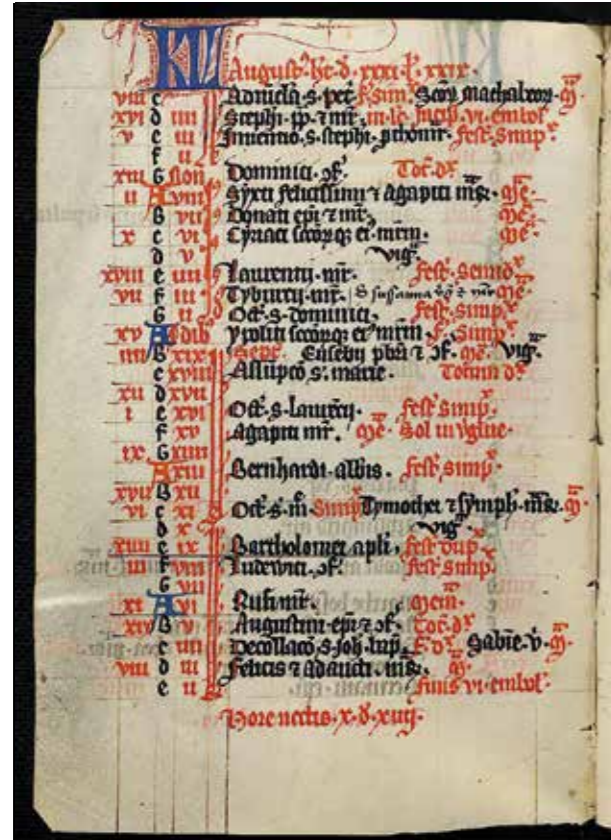 KL
August' ht. d. xxxi. l. xxix.
viii c Advicla. s. pet. f. sim. Scor machabeor. m
xvi d iiii Stephi. pp. & mr. in. le. incip. vi. embol.
v e iii Inventio. s. stephi. pthomr. fest. simp.
f ii
xiii G Non Dominici. cf. Tot. d.
ii A viii Syxti felicissimi & agapiti mr. me.
B vii Donati epi & mr. me.
x c vi Cyriaci socorq; ei. mrm. me.
d v vig.
xviii e iiii Laurentij. mr. fest. semid.
vii f iii Tyburcij. mr. S susanna vg & mr me.
G ii Oct. s. dominici. fest. simp.
xv A Idib ypoliti socorq; ei mrm. f. simp.
iiii B xix Sept. Eusebij pbri & cf. me. vig.
c xviii Assupco. s. marie. Totum d.
xii d xvii
i e xvi Oct. s. laurecij. fest. simp.
f xv Agapiti mr. me. Sol in vgine.
ix G xiiii
A xiii Bernhardi. abbis. fest. simp.
xvii B xii
vi c xi Oct. s. m. simp. Tymothei & symph. mr. m
d x vig.
xiiii e ix Bartholomei apli. fest. dup.
iii f viii Ludewici. cf. fest. simp.
G vii
xi A vi Rufi. mr. mem.
xix B v Augustini. epi & cf. Tot. d.
c iiii Decollaco. s. Joh. bap. f. d. Sabine. v. m
viii d iii Felicis & adaucti. mr. m
e ii finis vi. embol.
Hore noctis. x. d. xiiij.